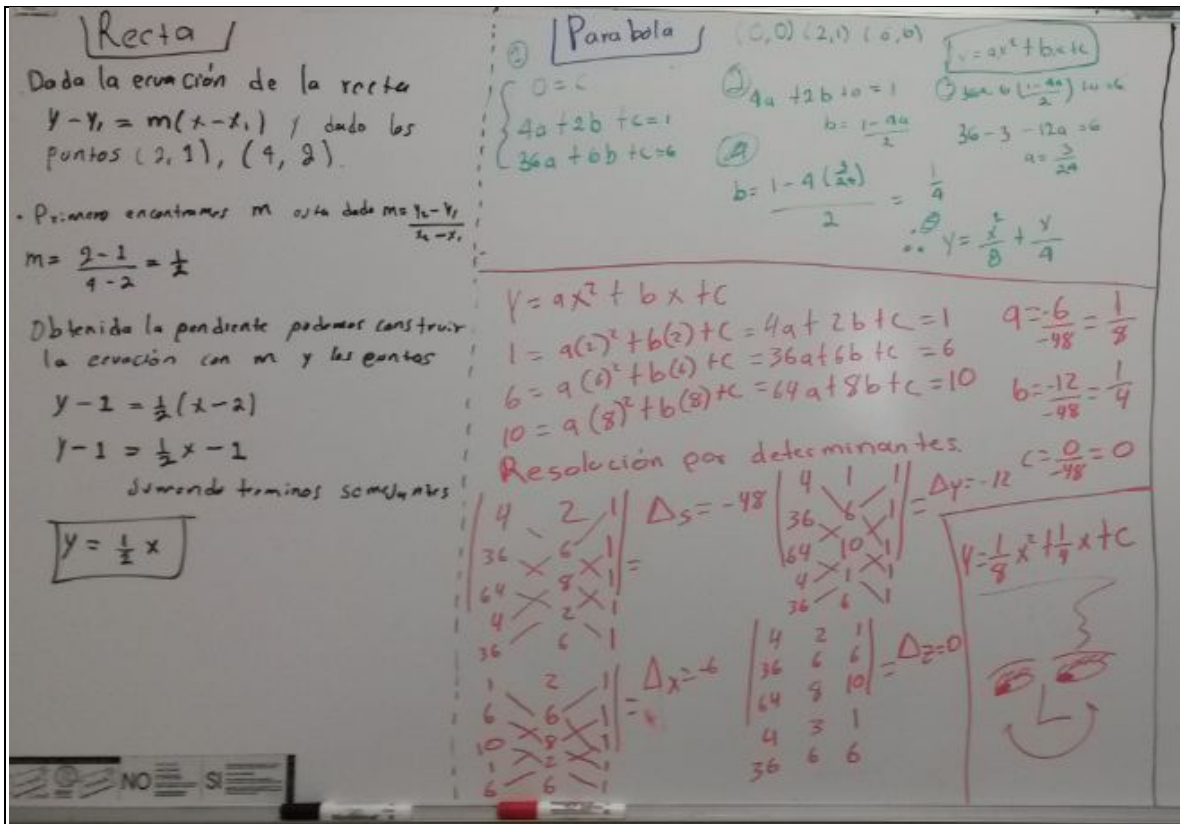 Recta
Dada la ecuación de la recta
y-y₁ = m(x-x₁) y dado los
puntos (2,1), (4,2).
· Primero encontramos m esta dado m= y₂-y₁/x₂-x₁
m= 2-1/4-2 = 1/2
Obtenida la pendiente podemos construir
la ecuación con m y los puntos
y-1 = 1/2(x-2)
y-1 = 1/2x-1
Sumando terminos semejantes
y = 1/2 x
Parabola
(0,0) (2,1) (6,6)
y=ax²+bx+c
①
0=c
4a+2b+c=1
36a+6b+c=6
② 4a+2b+0=1
b= 1-4a/2
③ 36a+6(1-4a/2)+0=6
36-3-12a=6
a= 3/24
④
b= 1-4(3/24)/2 = 1/4
∴ y= x²/8 + x/4
y=ax²+bx+c
1=a(2)²+b(2)+c=4a+2b+c=1
6=a(6)²+b(6)+c=36a+6b+c=6
10=a(8)²+b(8)+c=64a+8b+c=10
a=-6/-48=1/8
b=-12/-48=1/4
c=0/-48=0
Resolución por determinantes.
4 2 1
36 6 1
64 8 1
4 2 1
36 6 1
= Δs=-48
4 1 1
36 6 1
64 10 1
4 1 1
36 6 1
= Δy=-12
1 2 1
6 6 1
10 8 1
1 2 1
6 6 1
= Δx=-6
4 2 1
36 6 6
64 8 10
4 3 1
36 6 6
= Δz=0
y=1/8x²+1/4x+c
NO
SI